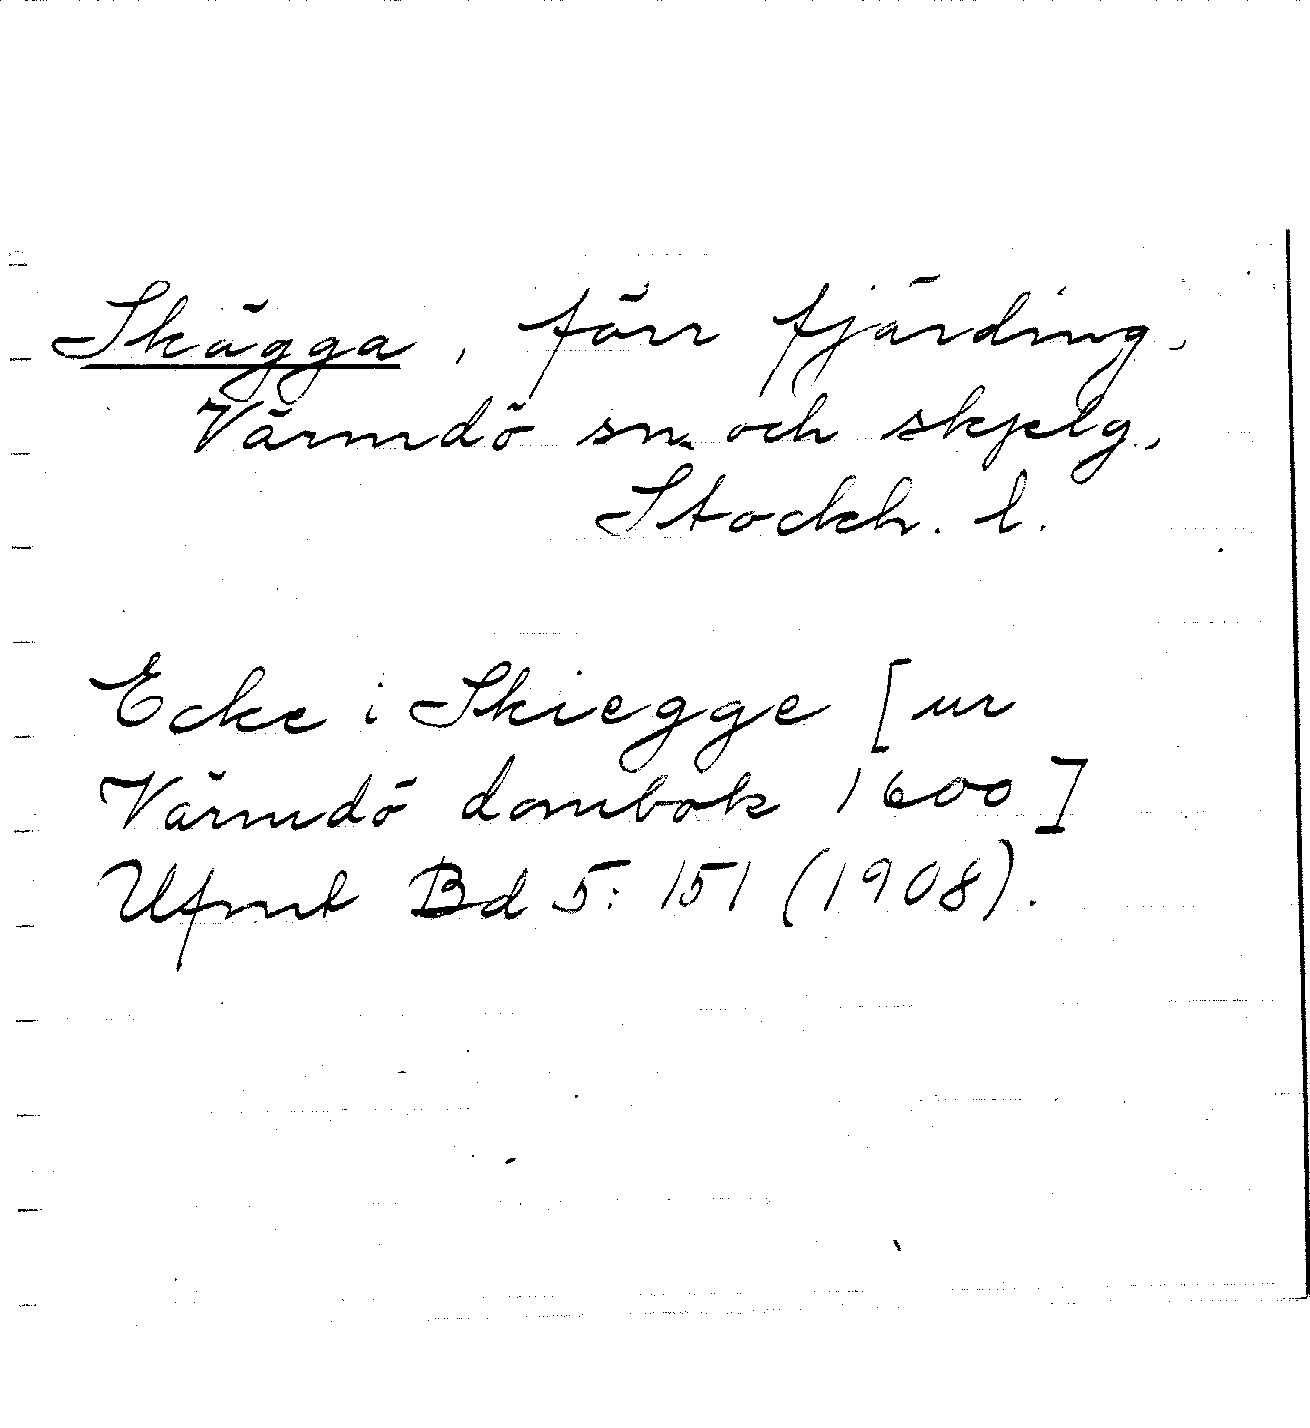 Skägga, förr fjärding,
Värmdö sn och skjelg,
Stockh. l.
Ecke i Skiegge [ur
Värmdö dombok 1600]
Ufmt Bd 5: 151 (1908).